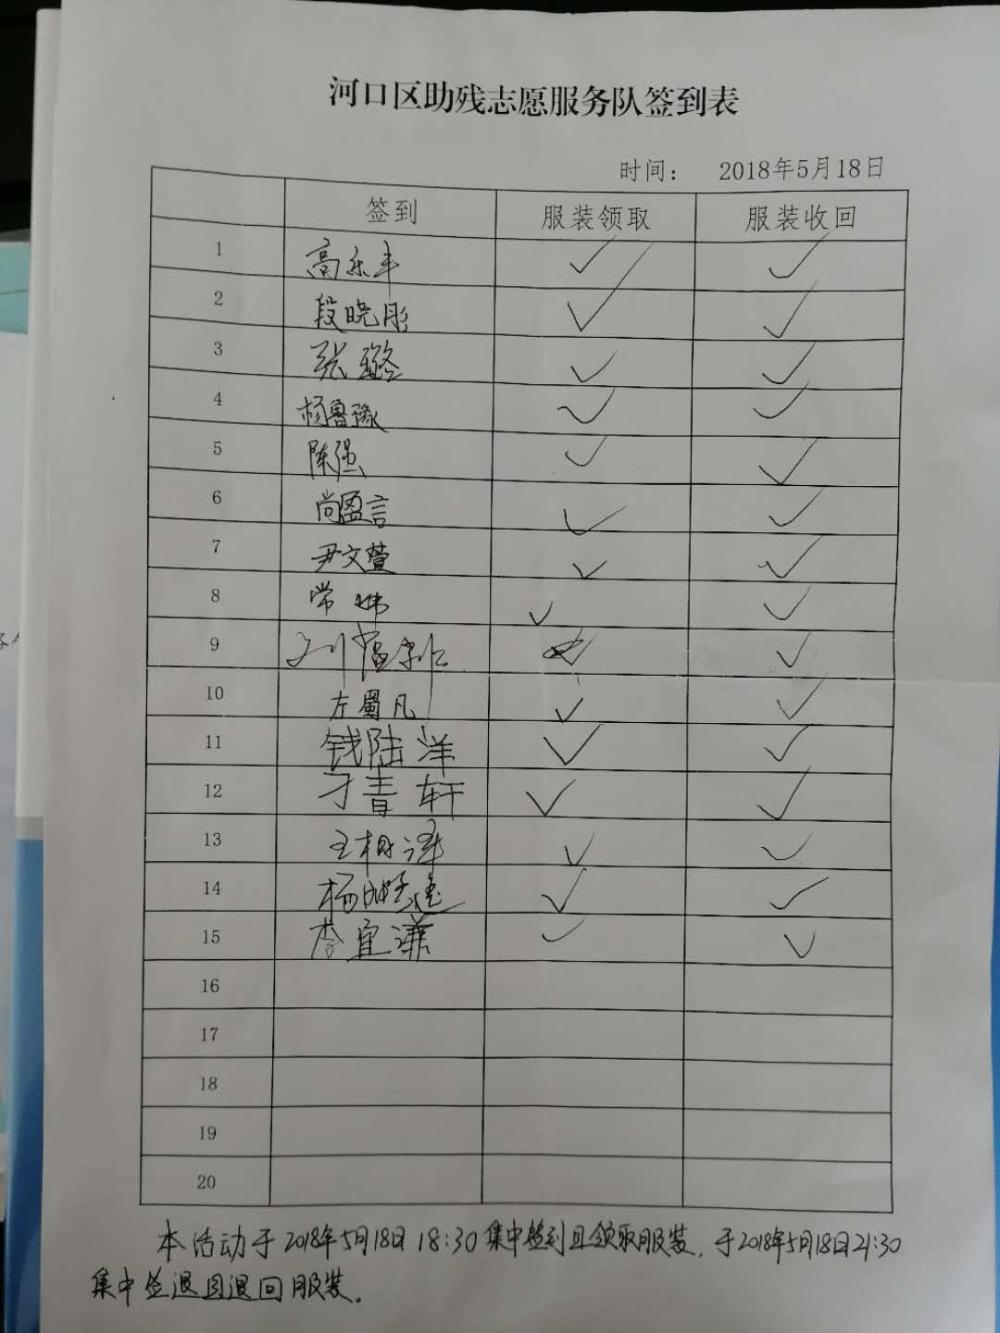 河口区助残志愿服务队签到表
时间： 2018年5月18日
签到 服装领取 服装收回
1 高乐丰 ✓ ✓
2 段晓彤 ✓ ✓
3 张璐 ✓ ✓
4 杨鲁豫 ✓ ✓
5 陈强 ✓ ✓
6 尚盈言 ✓ ✓
7 尹文萱 ✓ ✓
8 常炜 ✓ ✓
9 ✓ ✓
10 左蜀凡 ✓ ✓
11 钱陆洋 ✓ ✓
12 刁青轩 ✓ ✓
13 王相泽 ✓ ✓
14 杨 ✓ ✓
15 李宜谦 ✓ ✓
16
17
18
19
20
本活动于2018年5月18日18:30集中签到且领取服装，于2018年5月18日21:30
集中签退且退回服装。